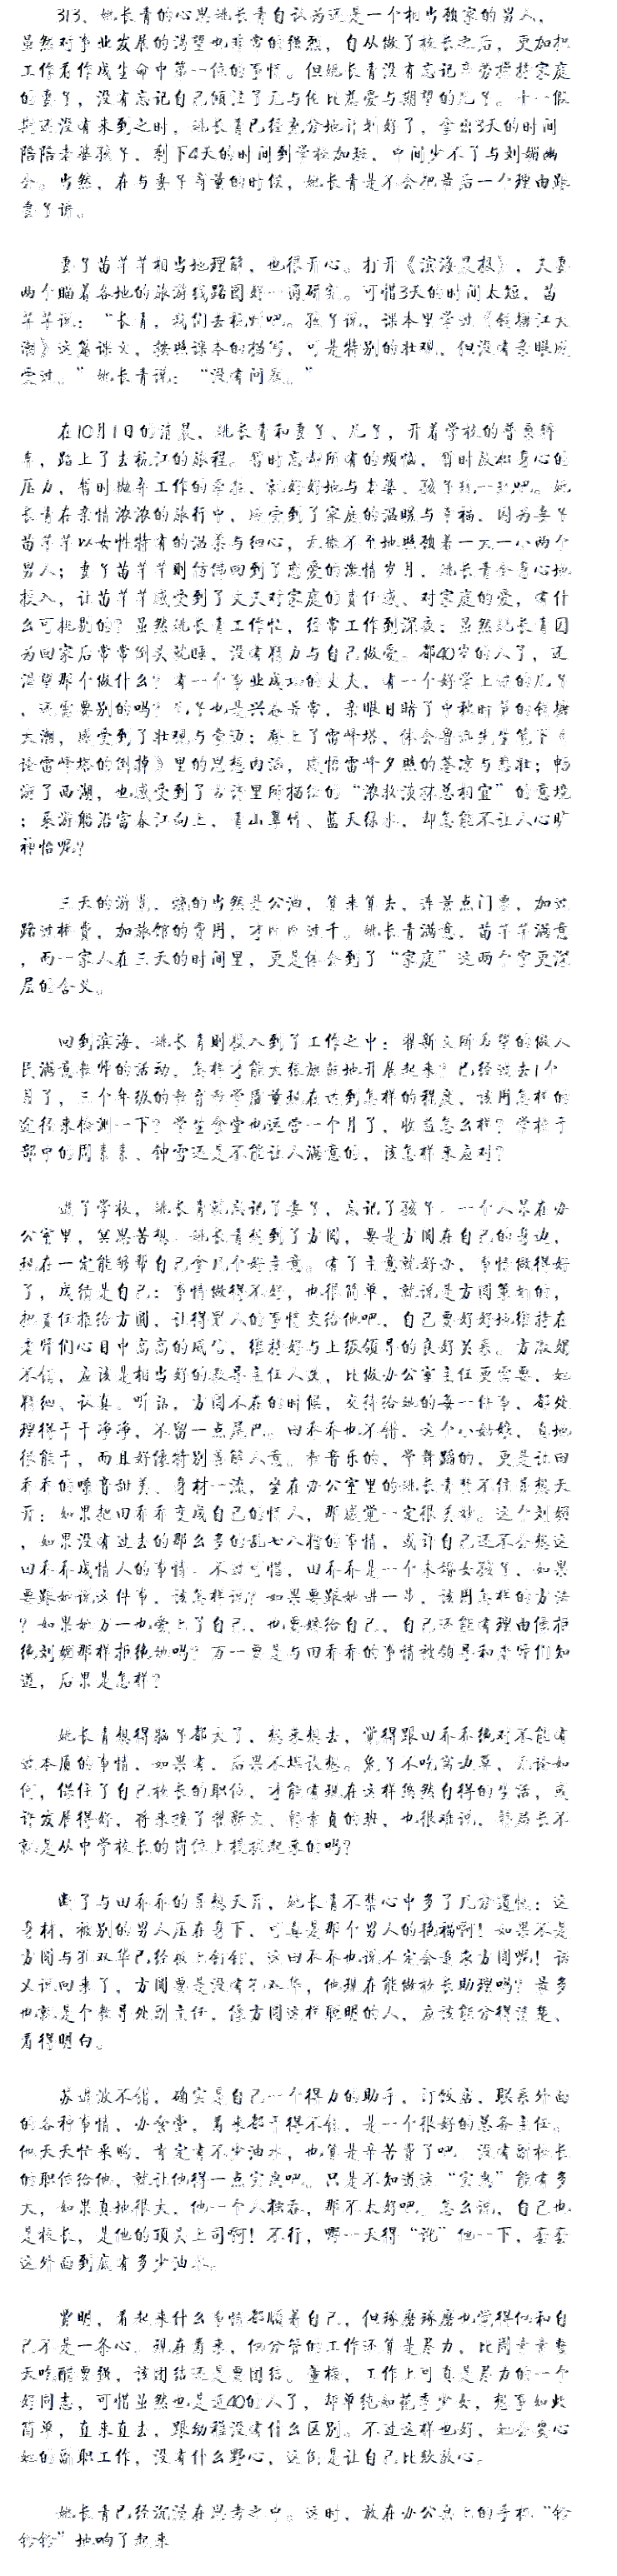 313、姚长青的心思姚长青自认为还是一个相当顾家的男人，
虽然对事业发展的渴望也非常的强烈，自从做了校长之后，更加把
工作看作成生命中第一位的事情。但姚长青没有忘记辛劳操持家庭
的妻子，没有忘记自己倾注了无与伦比慈爱与期望的儿子。十一假
期还没有来到之时，姚长青已经充分地计划好了，拿出3天的时间
陪陪老婆孩子，剩下4天的时间到学校加班，中间少不了与刘娟幽
会。当然，在与妻子商量的时候，姚长青是不会把最后一个理由跟
妻子讲。
妻子苗芊芊相当地理解，也很开心。打开《滨海晨报》，夫妻
两个瞄着各地的旅游线路图好一通研究。可惜3天的时间太短，苗
芊芊说：“长青，我们去杭州吧。孩子说，课本里学过《钱塘江大
潮》这篇课文，按照课本的描写，可是特别的壮观，但没有亲眼感
受过。”姚长青说：“没有问题。”
在10月1日的清晨，姚长青和妻子、儿子，开着学校的普桑轿
车，踏上了去杭江的旅程。暂时忘却所有的烦恼，暂时放松身心的
压力，暂时抛弃工作的牵挂，就好好地与老婆、孩子玩一玩吧。姚
长青在亲情浓浓的旅行中，感受到了家庭的温暖与幸福，因为妻子
苗芊芊以女性特有的温柔与细心，无微不至地照顾着一大一小两个
男人；妻子苗芊芊则仿佛回到了恋爱的激情岁月，姚长青全身心地
投入，让苗芊芊感受到了丈夫对家庭的责任感、对家庭的爱，有什
么可挑剔的？虽然姚长青工作忙，经常工作到深夜；虽然姚长青因
为回家后常常倒头就睡，没有精力与自己做爱。都40岁的人了，还
渴望那个做什么？有一个事业成功的丈夫，有一个好学上进的儿子
，还需要别的吗？儿子也是兴奋异常，亲眼目睹了中秋时节的钱塘
大潮，感受到了壮观与雪迈；登上了雷峰塔，体会鲁迅先生笔下《
论雷峰塔的倒掉》里的思想内涵，感悟雷峰夕照的苍凉与悲壮；畅
游了西湖，也感受到了古诗里所描绘的“浓妆淡抹总相宜”的意境
；乘游船沿富春江向上，青山翠竹、蓝天绿水，却怎能不让人心旷
神怡呢？
三天的游览，烧的当然是公油，算来算去，连景点门票，加过
路过桥费，加旅馆的费用，才刚刚过千。姚长青满意，苗芊芊满意
，而一家人在三天的时间里，更是体会到了“家庭”这两个字更深
层的含义。
回到滨海，姚长青则投入到了工作之中：翟新文所希望的做人
民满意教师的活动，怎样才能大张旗鼓地开展起来？已经过去1个
月了，三个年级的教育教学质量现在达到怎样的程度，该用怎样的
途径来检测一下？学生食堂也运营一个月了，收益怎么样？学校干
部中的周素素、钟雪还是不能让人满意的，该怎样来应对？
进了学校，姚长青就忘记了妻子，忘记了孩子。一个人呆在办
公室里，冥思苦想。姚长青想到了方圆，要是方圆在自己的身边，
现在一定能够帮自己拿几个好主意。有了主意就好办，事情做得好
了，成绩是自己；事情做得不好，也很简单，就说是方圆策划的，
把责任推给方圆，让得罪人的事情交给他吧，自己要好好地维持在
老师们心目中高高的威信，维持好与上级领导的良好关系。方淑娟
不错，应该是相当好的教导主任人选，比做办公室主任更需要，她
精细、认真、听话，方圆不在的时候，交待给她的每一件事，都处
理得干干净净，不留一点尾巴。田乔乔也不错，这个小姑娘，真地
很能干，而且好像特别善解人意。学音乐的，学舞蹈的，更是让田
乔乔的嗓音甜美、身材一流，坐在办公室里的姚长青禁不住异想天
开：如果把田乔乔变成自己的情人，那感觉一定很美妙。这个刘娟
，如果没有过去的那么多的乱七八糟的事情，或许自己还不会想这
田乔乔成情人的事情。不过可惜，田乔乔是一个未婚女孩子，如果
要跟她说这件事，该怎样说？如果要跟她进一步，该用怎样的方法
？如果她万一也爱上了自己，也要嫁给自己，自己还能有理由像拒
绝刘娟那样拒绝她吗？万一要是与田乔乔的事情被领导和老师们知
道，后果是怎样？
姚长青想得脑子都大了，想来想去，觉得跟田乔乔绝对不能有
过本质的事情，如果有，后果不堪设想。兔子不吃窝边草，无论如
何，保住了自己校长的职位，才能有现在这样悠然自得的生活，或
许发展得好，将来接了翟新文、韩素贞的班，也很难说，韩局长不
就是从中学校长的岗位上提拔起来的吗？
断了与田乔乔的异想天开，姚长青不禁心中多了几分遗憾：这
身材，被别的男人压在身下，可真是那个男人的艳福啊！如果不是
方圆与孔双华已经板上钉钉，这田乔乔也说不定会喜欢方圆呢！话
又说回来了，方圆要是没有孔双华，他现在能做校长助理吗？最多
也就是个教导处副主任，像方圆这样聪明的人，应该能分得清楚、
看得明白。
苏进波不错，确实是自己一个得力的助手，订饭店、联系外面
的各种事情，办食堂，看来都干得不错，是一个很好的总务主任。
他天天忙采购，肯定有不少油水，也算是辛苦费了吧，没有副校长
的职位给他，就让他得一点实惠吧。只是不知道这“实惠”能有多
大，如果真地很大，他一个人独吞，那不太好吧，怎么说，自己也
是校长，是他的顶头上司啊！不行，哪一天得“诈”他一下，套套
这外面到底有多少油水。
贾明，看起来什么事情都顺着自己，但琢磨琢磨也觉得他和自
己不是一条心。现在看来，他分管的工作还算是尽力，比周素素整
天吃醋要强，该团结还是要团结。董梅，工作上可真是尽力的一个
好同志，可惜虽然也是近40的人了，却单纯如花季少女，想事如此
简单，直来直去，跟幼稚没有什么区别。不过这样也好，她会费心
她的副职工作，没有什么野心，这倒是让自己比较放心。
姚长青已经沉浸在思考之中。这时，放在办公桌上的手机“铃
铃铃”地响了起来